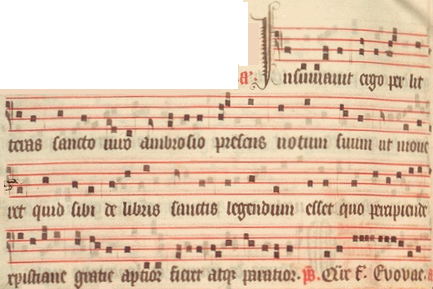 a. Insinuavit ergo per lit
teras sancto viro ambrosio presens votum suum ut move
ret quid sibi de libris sanctis legendum esset quo percipiende
xpistiane gratie aptior fieret atque paratior. ps. Euovae.